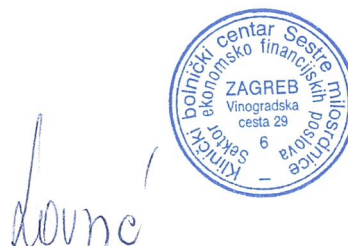 Klinički bolnički centar Sestre milosrdnice
Sektor ekonomsko financijskih poslova
ZAGREB
Vinogradska
cesta 29
6